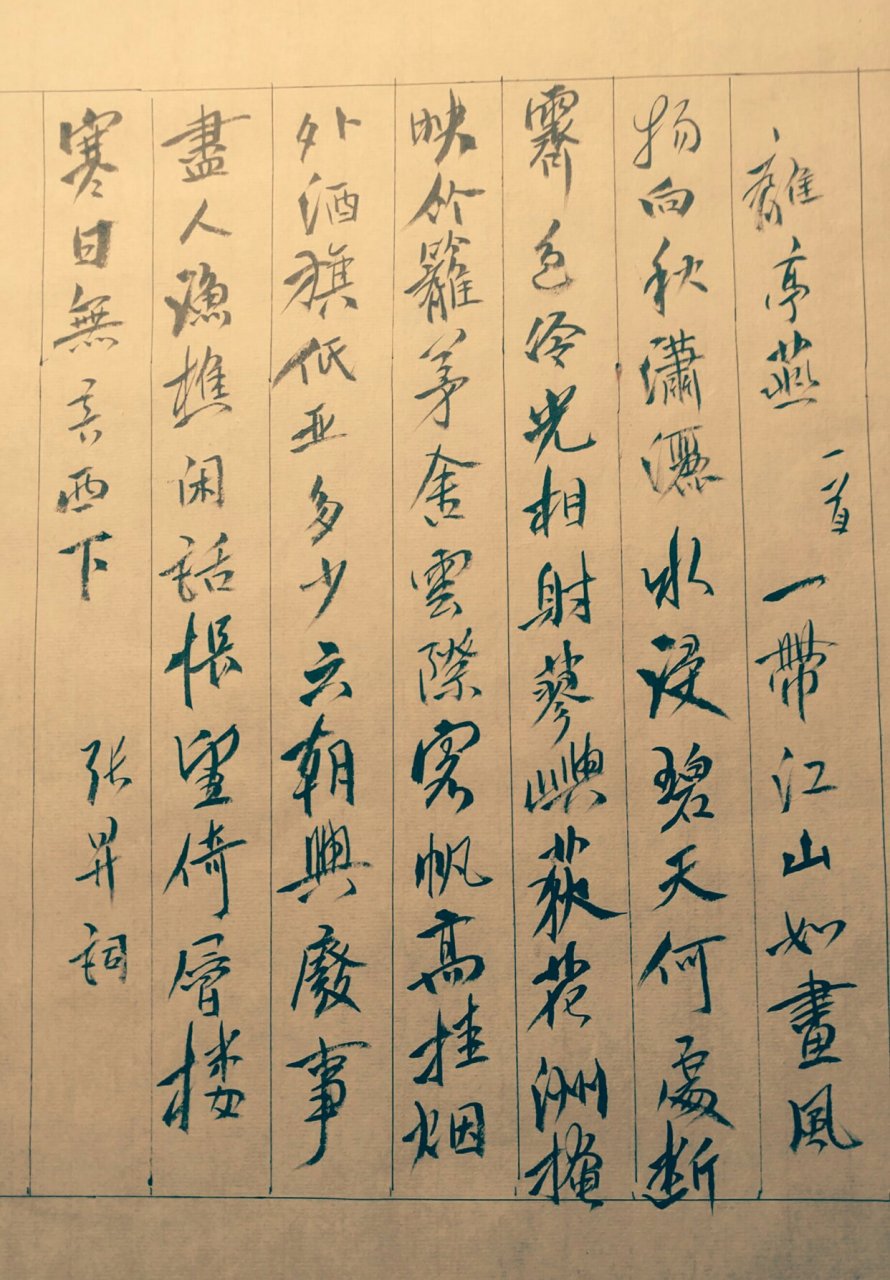 離亭燕 一首 一帶江山如畫風
物向秋瀟灑水浸碧天何處斷
霽色冷光相射蓼嶼荻花洲掩
映竹籬茅舍雲際客帆高挂烟
外酒旗低亚多少六朝興廢事
盡人漁樵闲話悵望倚層樓
寒日無言西下 张昇詞